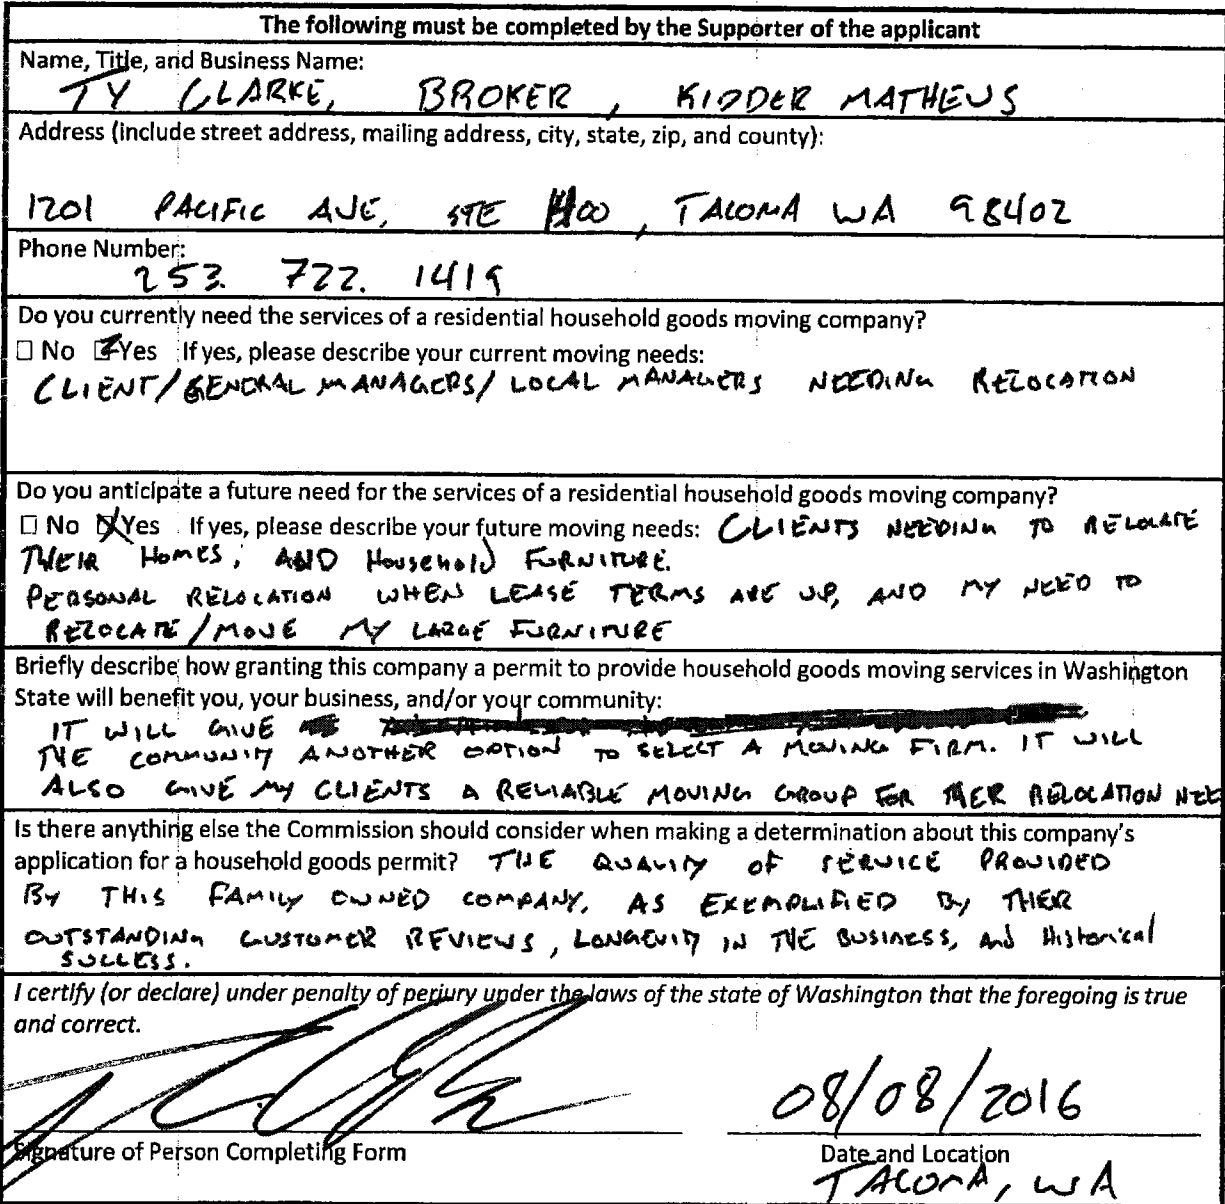 The following must be completed by the Supporter of the applicant
Name, Title, and Business Name:
TY CLARKE, BROKER, KIDDER MATHEWS
Address (include street address, mailing address, city, state, zip, and county):
1201 PACIFIC AVE, STE 1400, TACOMA WA 98402
Phone Number:
253. 722. 1419
Do you currently need the services of a residential household goods moving company?
☐ No ☑ Yes If yes, please describe your current moving needs:
CLIENT/GENERAL MANAGERS/LOCAL MANAGERS NEEDING RELOCATION
Do you anticipate a future need for the services of a residential household goods moving company?
☐ No ☒ Yes If yes, please describe your future moving needs: CLIENTS NEEDING TO RELOCATE
THEIR HOMES, AND Household FURNITURE.
PERSONAL RELOCATION WHEN LEASE TERMS ARE UP, AND MY NEED TO
RELOCATE/MOVE MY LARGE FURNITURE
Briefly describe how granting this company a permit to provide household goods moving services in Washington
State will benefit you, your business, and/or your community:
IT WILL GIVE
THE COMMUNITY ANOTHER OPTION TO SELECT A MOVING FIRM. IT WILL
ALSO GIVE MY CLIENTS A RELIABLE MOVING GROUP FOR THER RELOCATION NEE
Is there anything else the Commission should consider when making a determination about this company's
application for a household goods permit? THE QUALITY OF SERVICE PROVIDED
BY THIS FAMILY OWNED COMPANY, AS EXEMPLIFIED BY THER
OUTSTANDING CUSTOMER REVIEWS, LONGEVITY IN THE BUSINESS, And Historical
SUCCESS.
I certify (or declare) under penalty of perjury under the laws of the state of Washington that the foregoing is true
and correct.
08/08/2016
Signature of Person Completing Form
Date and Location
TACOMA, WA